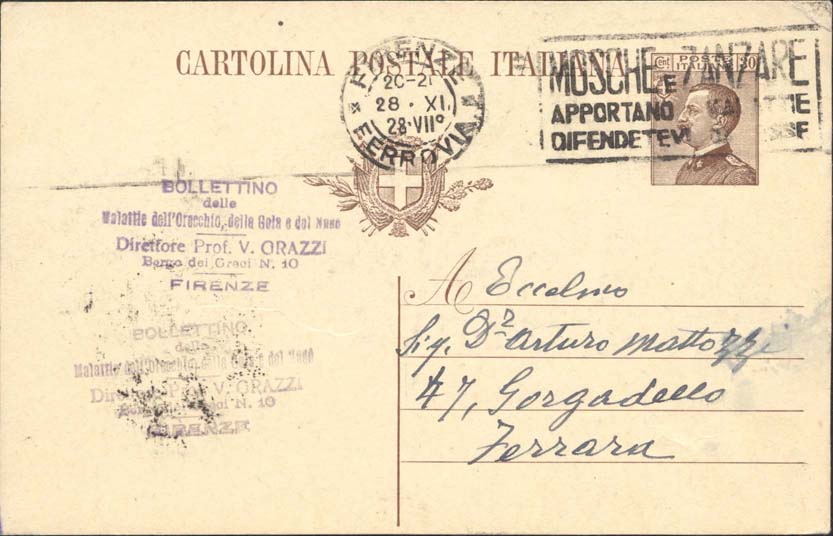 CARTOLINA POSTALE ITALIANA
FIRENZE
20-21
28 · XI
28·VII°
FERROVIA
MOSCHE E ZANZARE
APPORTANO MALATTIE
DIFENDETEVI
Cent 30
POSTE
ITALIANE
BOLLETTINO
delle
Malattie dell'Orecchio, della Gola e del Naso
Direttore Prof. V. GRAZZI
Borgo dei Greci N. 10
FIRENZE
BOLLETTINO
delle
Malattie dell'Orecchio, della Gola e del Naso
Direttore Prof. V. GRAZZI
Borgo dei Greci N. 10
FIRENZE
A Eccelmo
Sig. Dr Arturo Mattozzi
47, Gorgadello
Ferrara